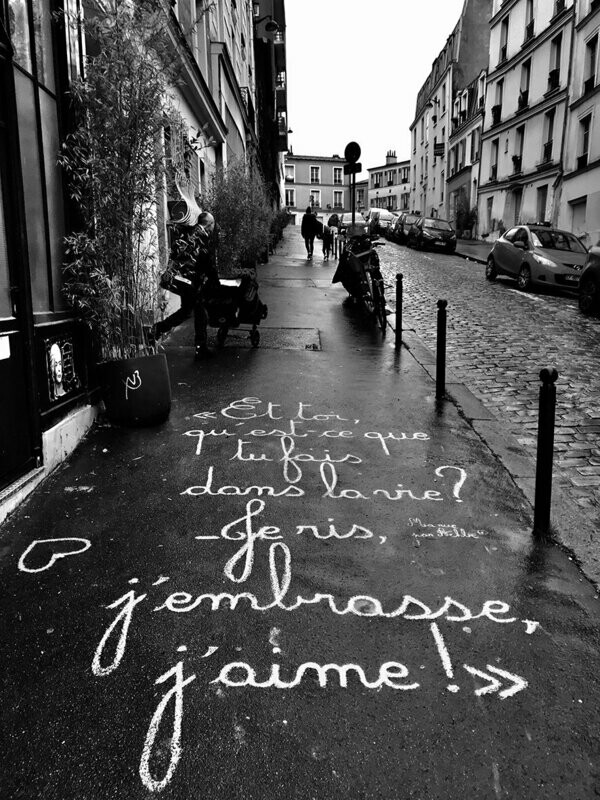 « Et toi,
qu'est-ce que
tu fais
dans la vie ?
– Je ris,
j'embrasse,
j'aime ! »